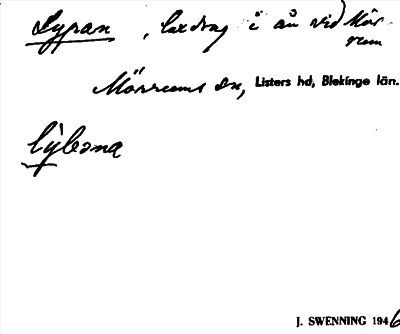 Lyran, laxdrag i ån vid Mör-
rum
Mörrums sn, Listers hd, Blekinge län.
J. SWENNING 1946